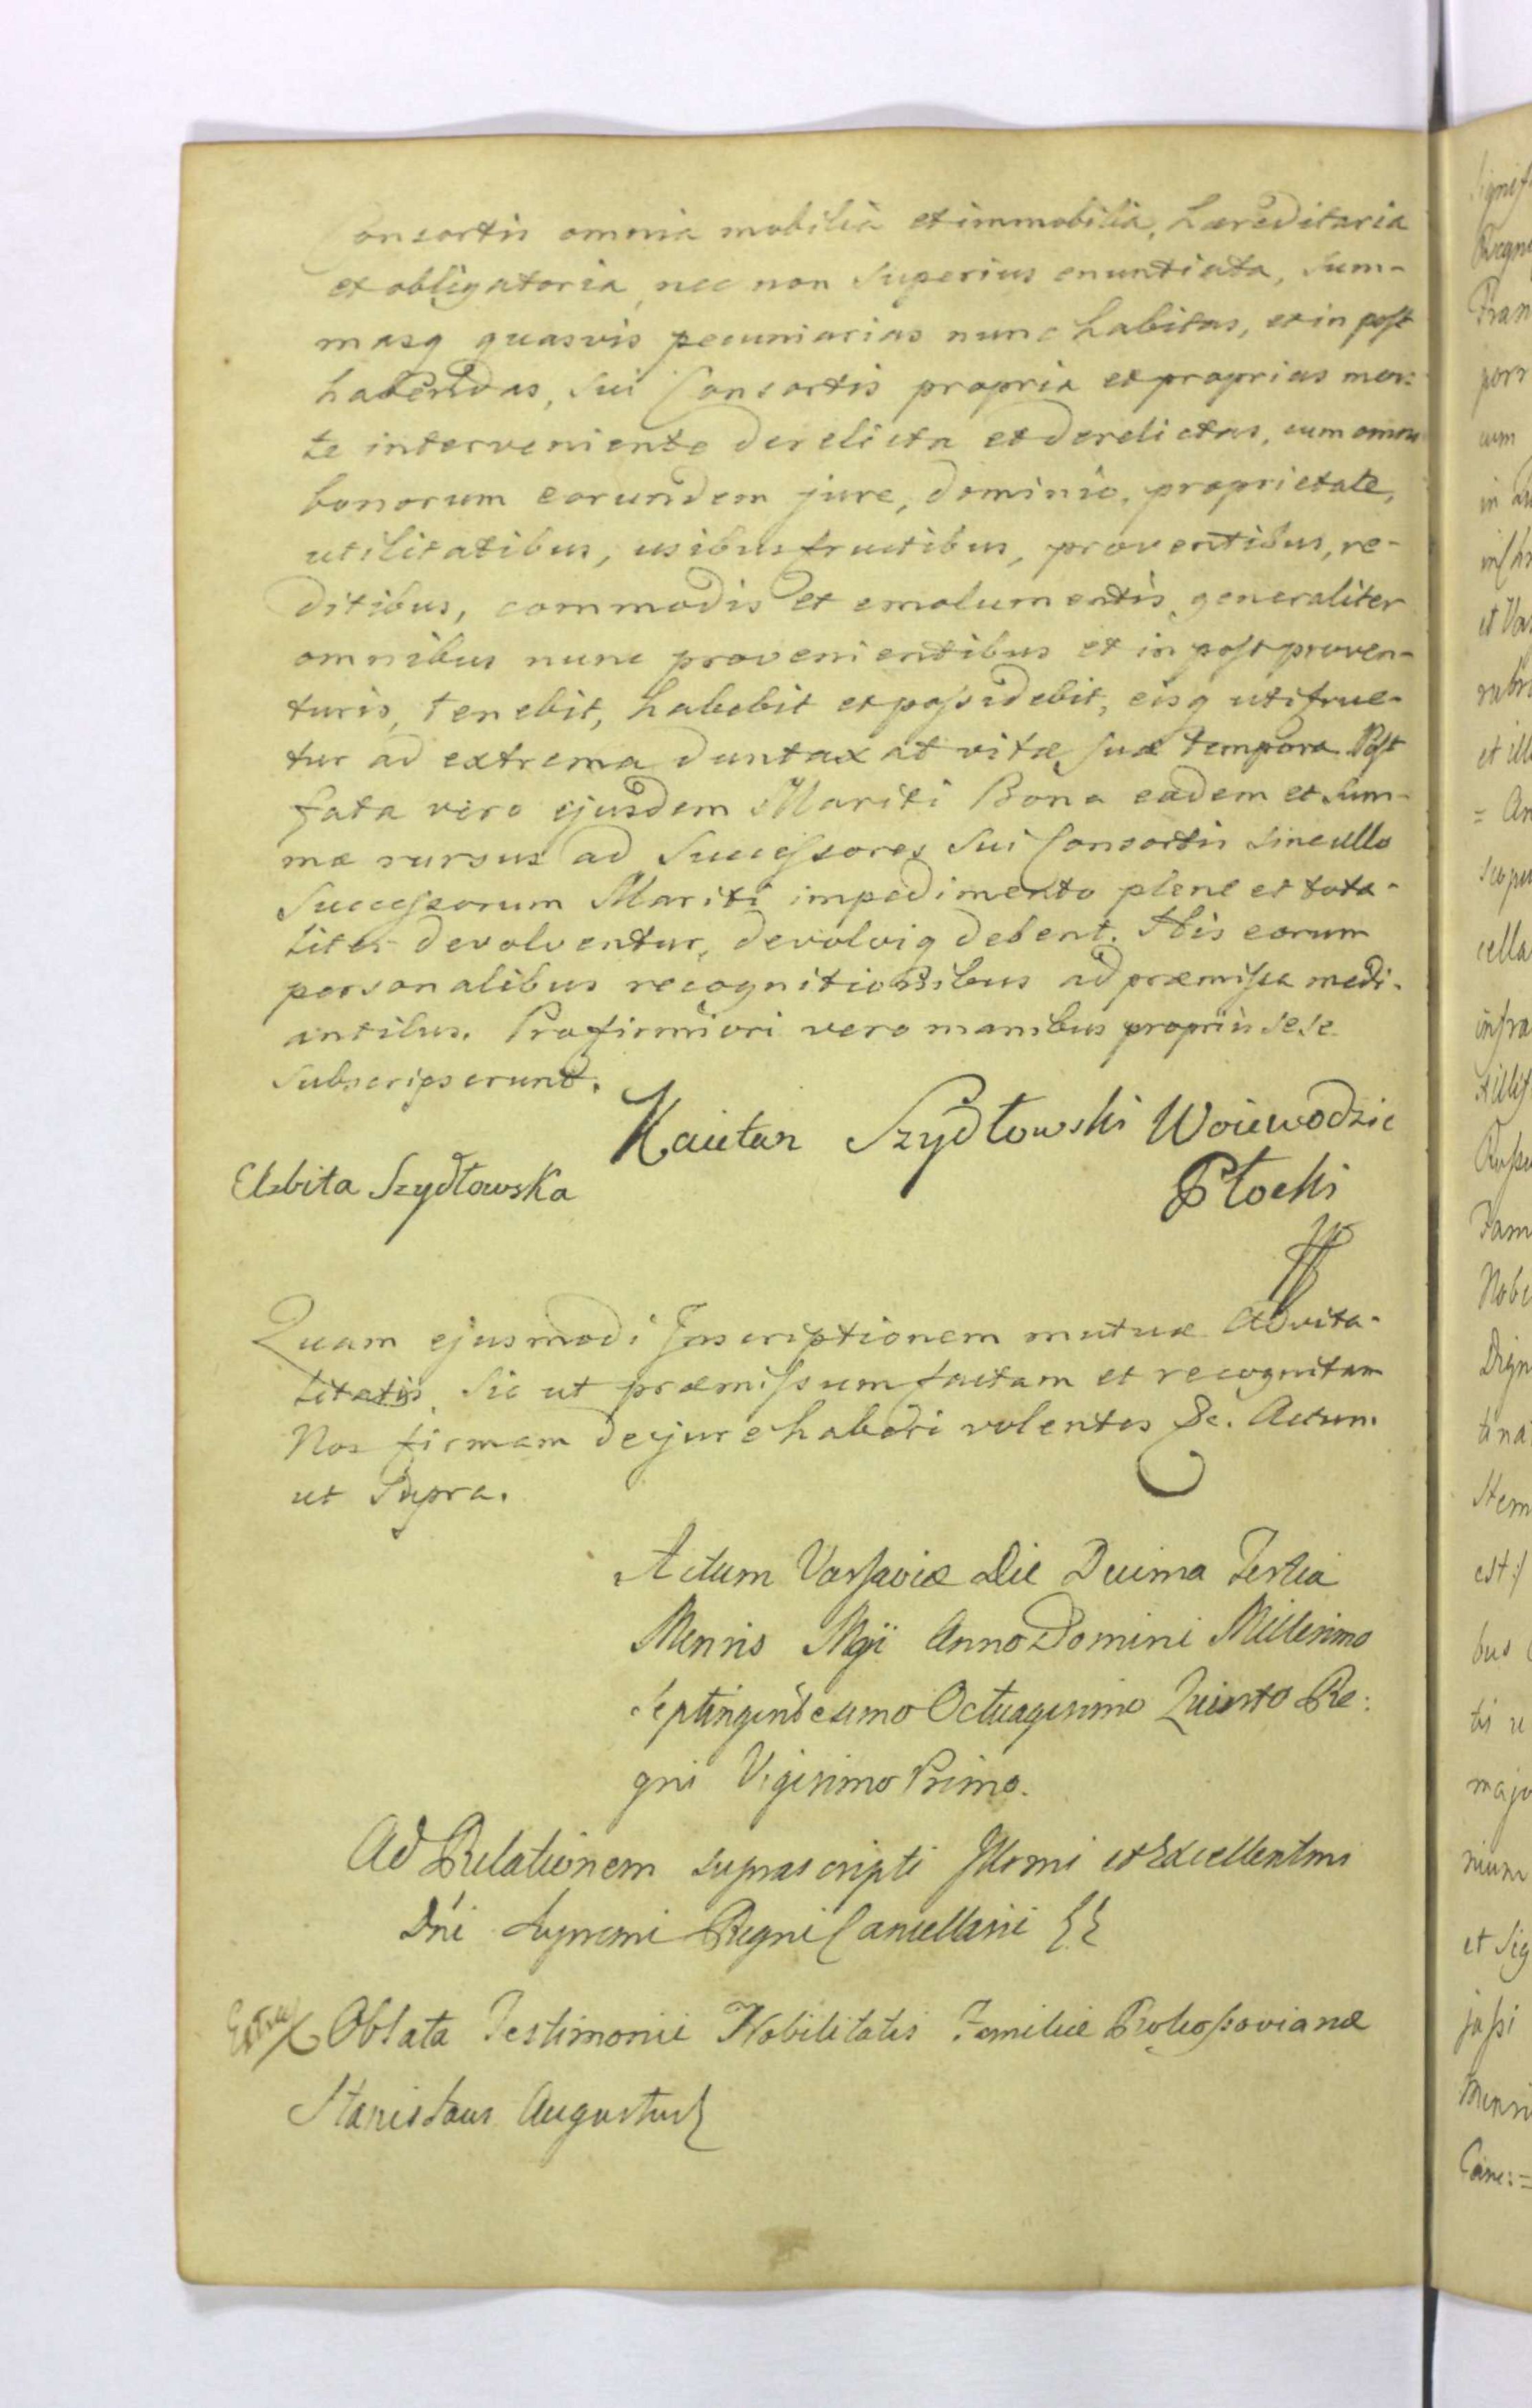 Consortis omnia mobilia et immobilia, haereditaria
et obligatoria, nec non superius enuntiata, sum-
masq quasvis pecuniarias nunc habitas, et in post
habendas, sui Consortis propria et proprias mor-
te interveniente derelicta et derelictas, cum omni
bonorum eorundem jure, dominio, proprietate,
utilitatibus, usibusfructibus, proventibus, re-
ditibus, commodis et emolumentis generaliter
omnibus nunc provenientibus et in post proven-
turis, tenebit, habebit et possidebit, eisq utifrue-
tur ad extrema duntaxat vitæ suæ tempora. Post
fata vero ejusdem Mariti Bona eadem et sum-
mæ rursus ad Successores sui Consortis sine ullo
Successorum Mariti impedimento plene et tota-
liter devolventur, devolviq debent. His eorum
personalibus recognitionibus ad præmissa medi-
antibus. Pro firmiori vero manibus propriis sese
subscripserunt.
Kaietan Szydłowski Woiewodzic
Elzbita Szydłowska
Płocki
Quam ejusmodi Inscriptionem mutuæ advita-
litatis, sic ut præmissum factam et recognitam
Nos firmam de jure haberi volentes &c. Actum
ut Supra.
Actum Varsaviæ Die Decima Tertia
Mensis Maji Anno Domini Millesimo
Septingentesimo Octuagesimo Quinto Re:
gni Vigesimo Primo.
Ad Relationem suprascripti Illsmi et Excellentmi
Dni Supremi Regni Cancellarii
Extra Oblata Testimonii Nobilitatis Familiæ
Stanislaus Augustus